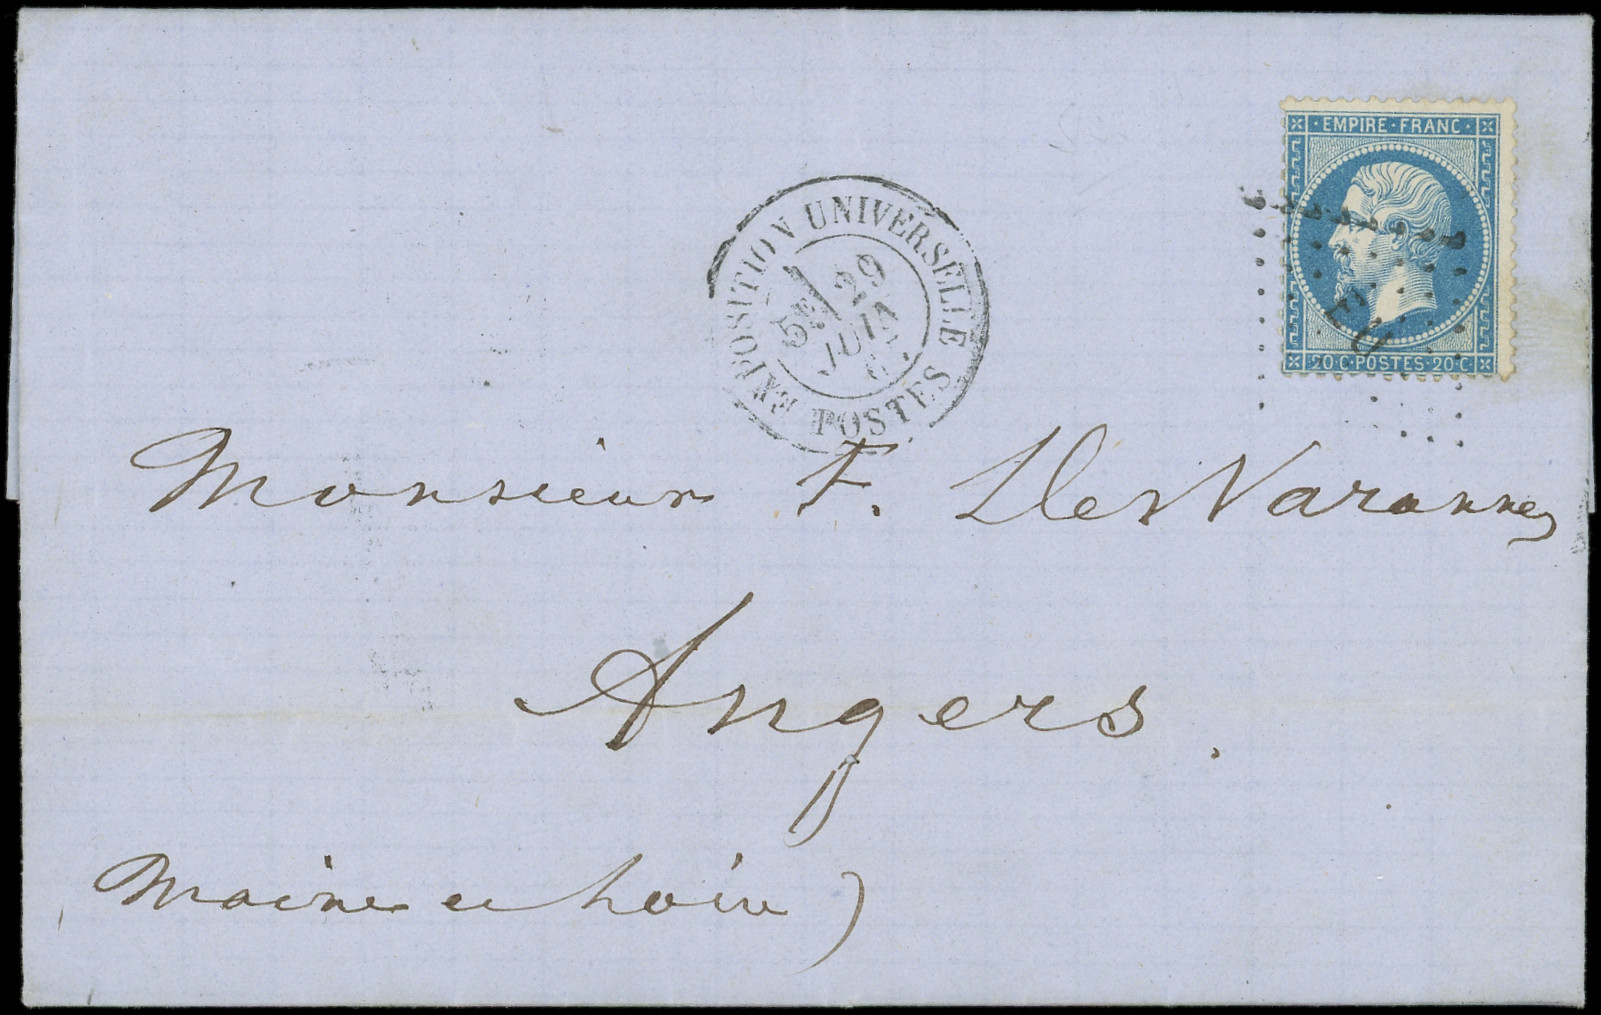 EMPIRE · FRANC ·
20 C · POSTES · 20 C ·
EXPOSITION UNIVERSELLE
5E
29
JUIN
POSTES
EU
Monsieur F. Des Varannes
Angers.
Maine et Loire)